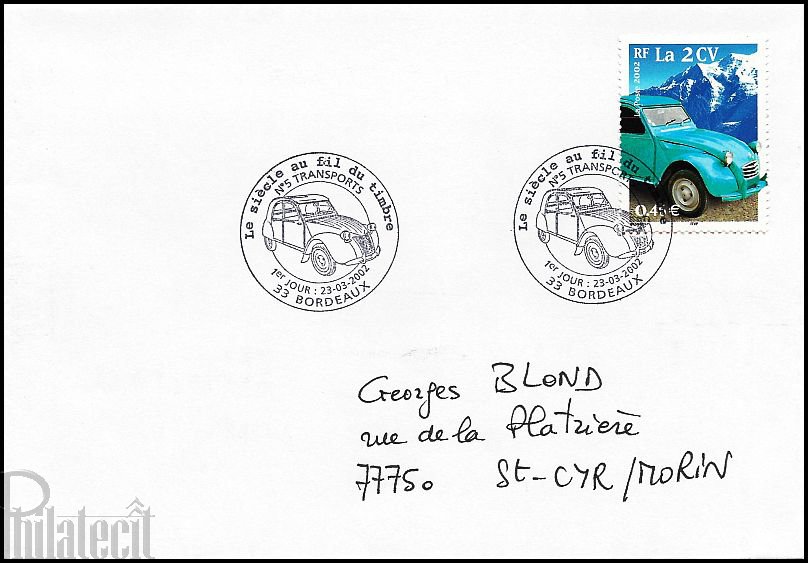 RF La 2CV
La Poste 2002
0.46€
Le siècle au fil du timbre
N°5 TRANSPORTS
1er JOUR : 23-03-2002
33 BORDEAUX
Le siècle au fil du t
N°5 TRANSPORTS
1er JOUR : 23-03-2002
33 BORDEAUX
Georges BLOND
rue de la Platrière
77750 St-CYR/MORIN
Philatecit